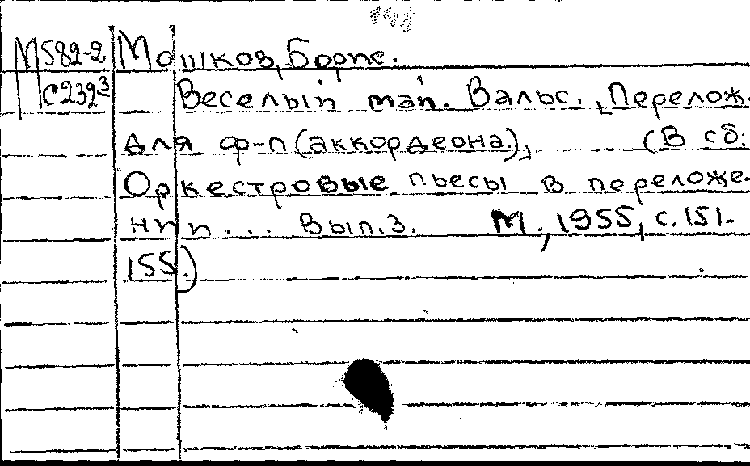 М582-2 Мошков, Борис.
С232³ Веселый май. Вальс. [Перелож.
для ф-п (аккордеона), ... (В сб:
Оркестровые пьесы в переложе-
нии... Вып.3. М., 1955, с.151-
155.)